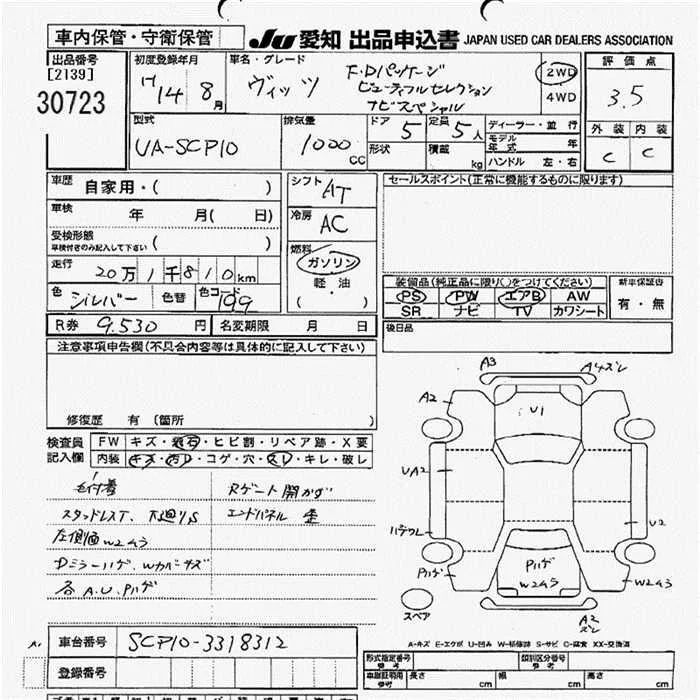 車内保管・守衛保管
JU 愛知 出品申込書 JAPAN USED CAR DEALERS ASSOCIATION
出品番号
[2139]
30723
初度登録年月
14 8月
車名・グレード
ヴィッツ
F.Dパッケージ
ビューティフルセレクション
ナビスペシャル
2WD
4WD
評価点
3.5
外装 内装
C C
型式
UA-SCP10
排気量
1000 CC
ドア 5
形状
定員 5人
積載 kg
ディーラー・並行
モデル年式 年
ハンドル 左・右
車歴 自家用・( )
車検 年 月( 日)
受検形態
車検付きのみ記入して下さい ( )
走行 20万1千810km
色 シルバー 色替 色コード 199
シフト AT
冷房 AC
燃料
ガソリン
軽・油
( )
セールスポイント(正常に機能するものに限ります)
装備品(純正品に限り()をつけてください)
PS PW エアB AW
SR ナビ TV カワシート
新車保証書
有・無
後日品
R券 9.530 円 名変期限 月 日
注意事項申告欄(不具合内容等は具体的に記入して下さい)
修復歴 有 (箇所 )
検査員
記入欄
FW キズ・飛石・ヒビ割・リペア跡・X要
内装 キズ・汚レ・コゲ・穴・スレ・キレ・破レ
毛付着
スタッドレスT、下廻りS
左側面W2ムラ
Dミラーハゲ、Wカバーキズ
各A.U.Pハゲ
Rゲート開かず
エンドパネル 歪
A3
A4ズレ
A2
U1
UA2
U2
Pハゲ
Pハゲ
W2ムラ
W2ムラ
A2
ズレ
スペア
A-キズ E-エクボ U-凹み W-補修跡 S-サビ C-腐食 XX-交換済
車台番号 SCP10-3318312
登録番号
形式指定番号
参考
類別区分番号
参考
車庫証明用
参考
長さ cm 幅 cm 高さ cm